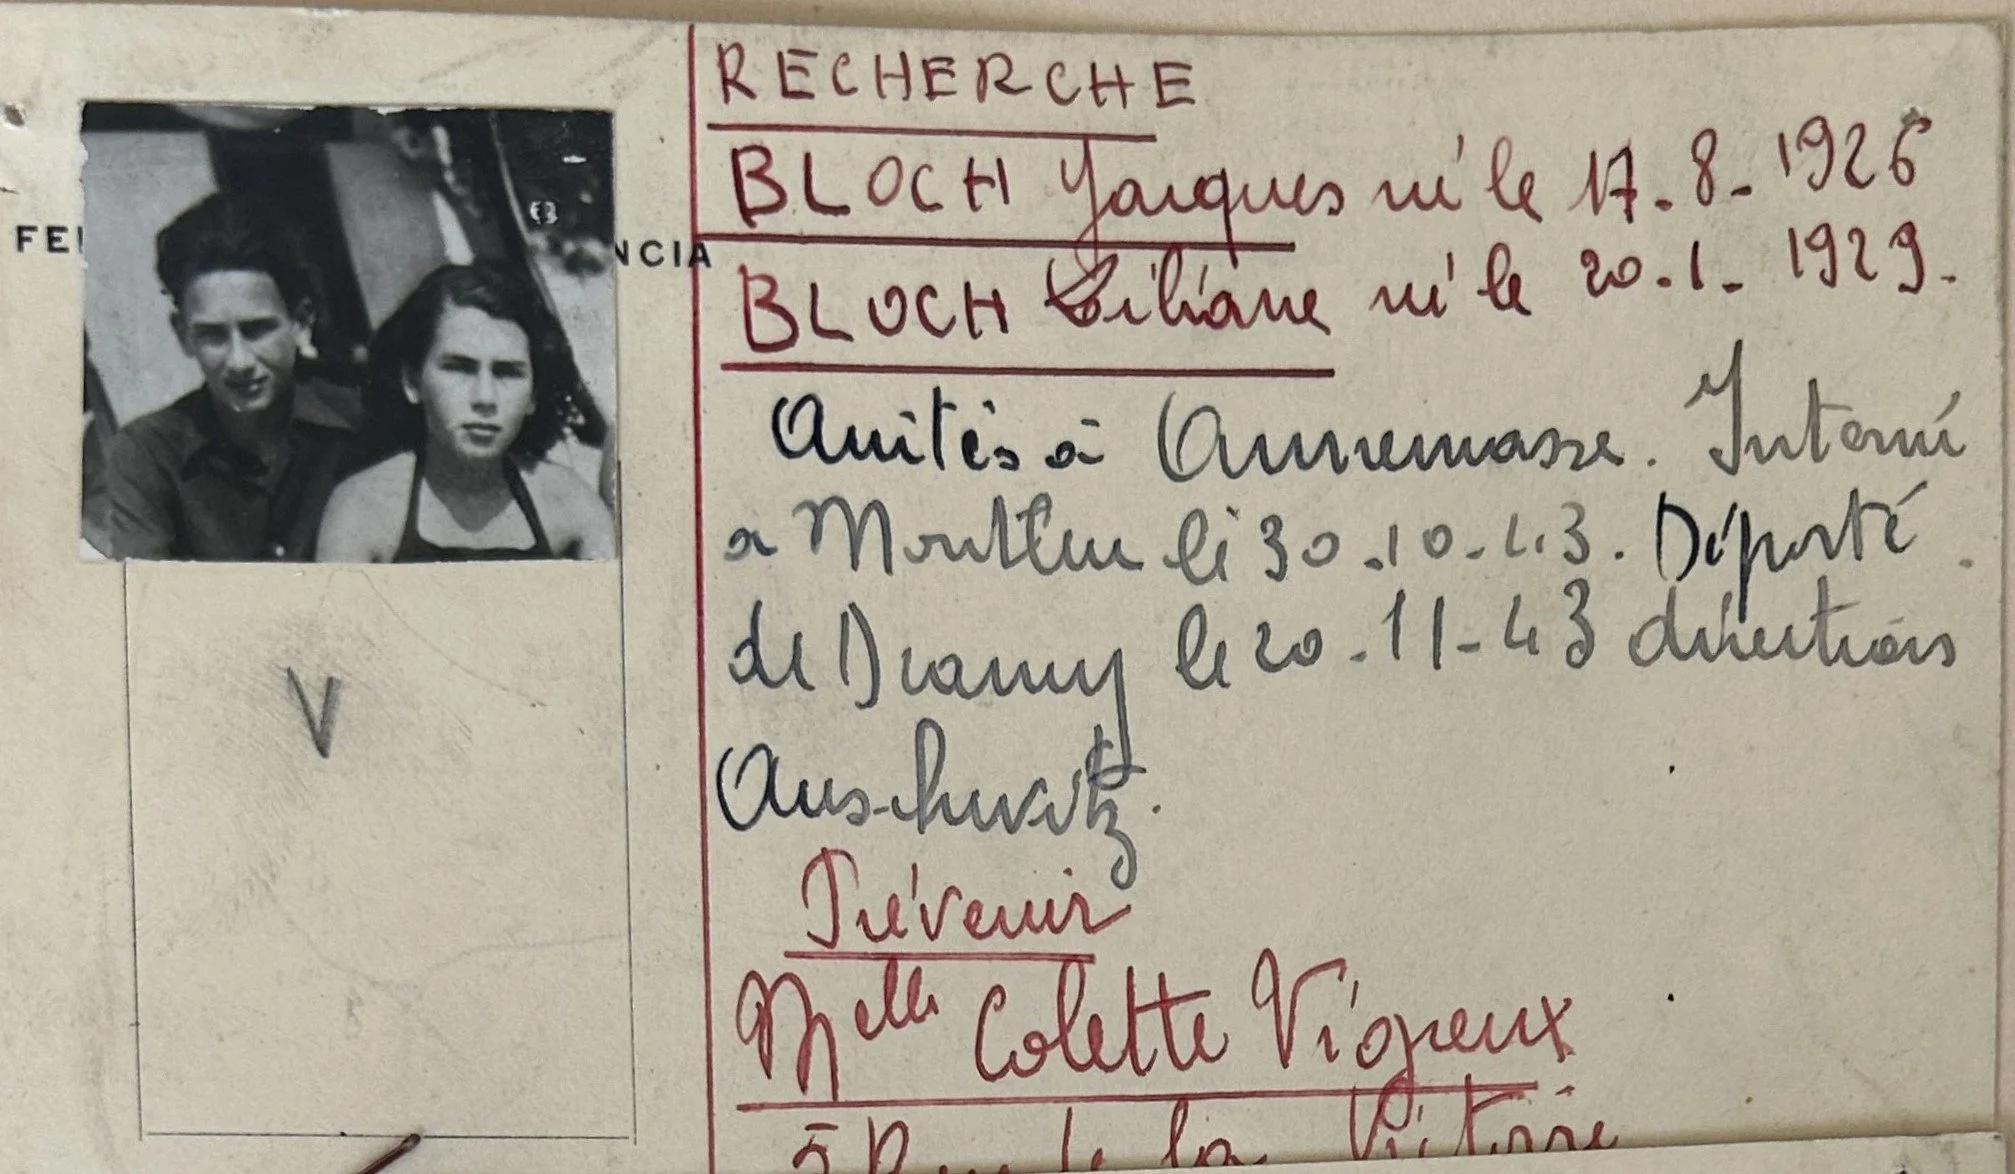 FE NCIA
RECHERCHE
BLOCH Jacques né le 17-8-1926
BLOCH Liliane né le 20.1-1929.
Arrêtés à Annemasse. Interné
a Montluc le 30.10-43. Déporté
de Drancy le 20-11-43 direction
Auschwitz.
Prévenir
Melle Colette Vigneux
5 Rue de la Victoire
V